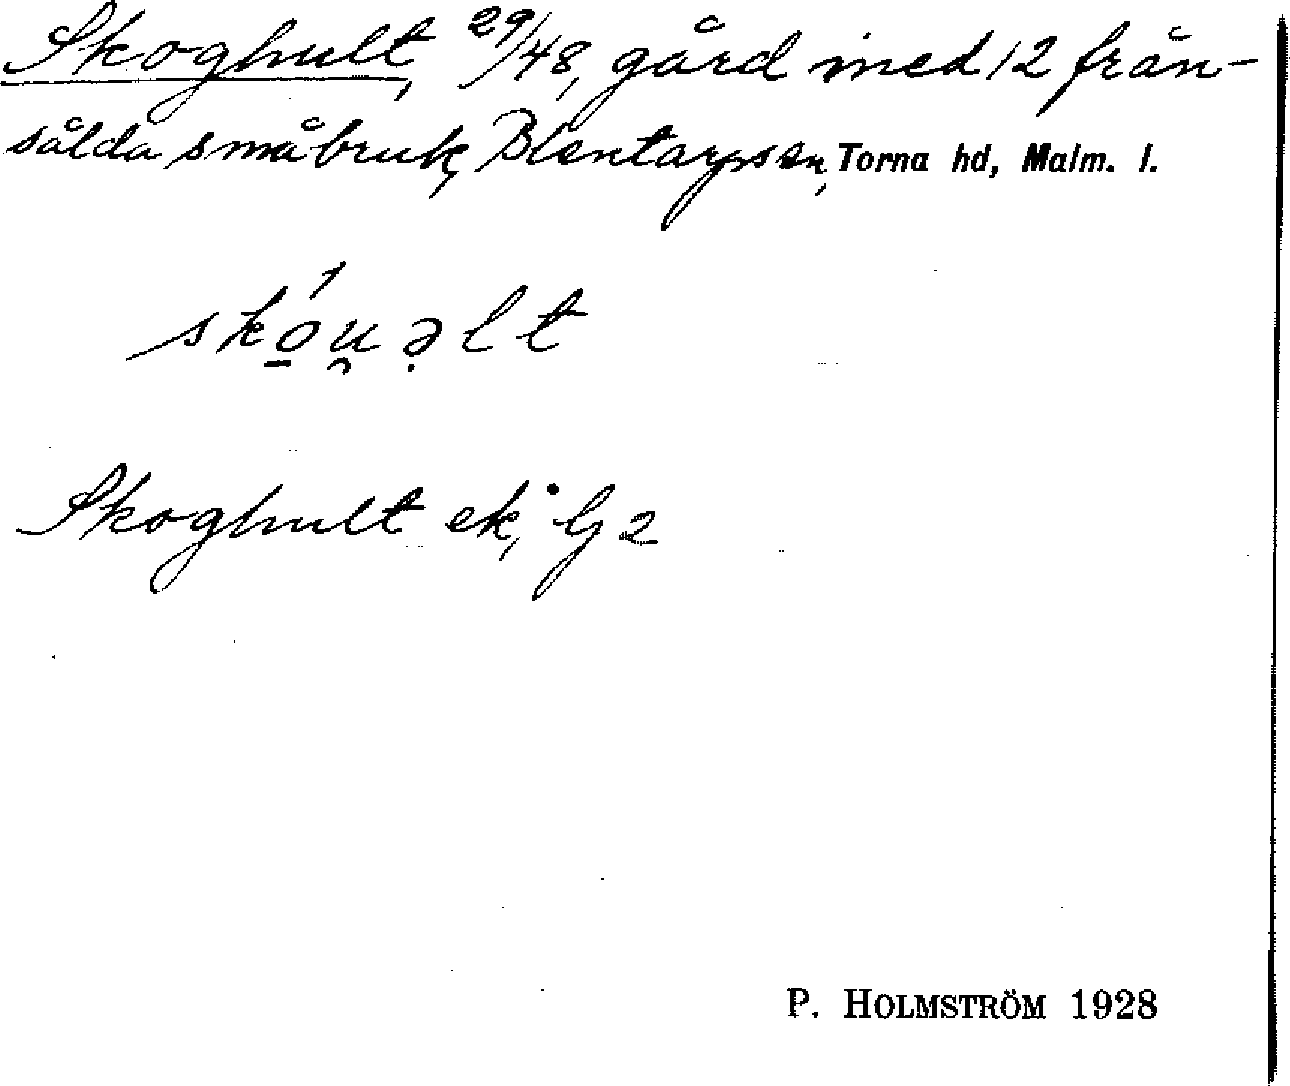 Skoghult, 29/48, gård med 12 från-
sålda småbruk, Blentarps sn, Torna hd, Malm. l.
skó̱u̯ə̣lt
Skoghult ek, G 2
P. HOLMSTRÖM 1928